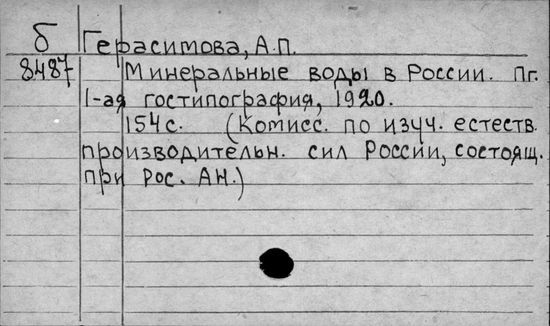 б Герасимова, А.П.
8487 Минеральные воды в России. Пг.
1-ая гостипография, 1920.
154 с. (Комисс. по изуч. естеств.
производительн. сил России, состоящ.
при Рос. АН.)